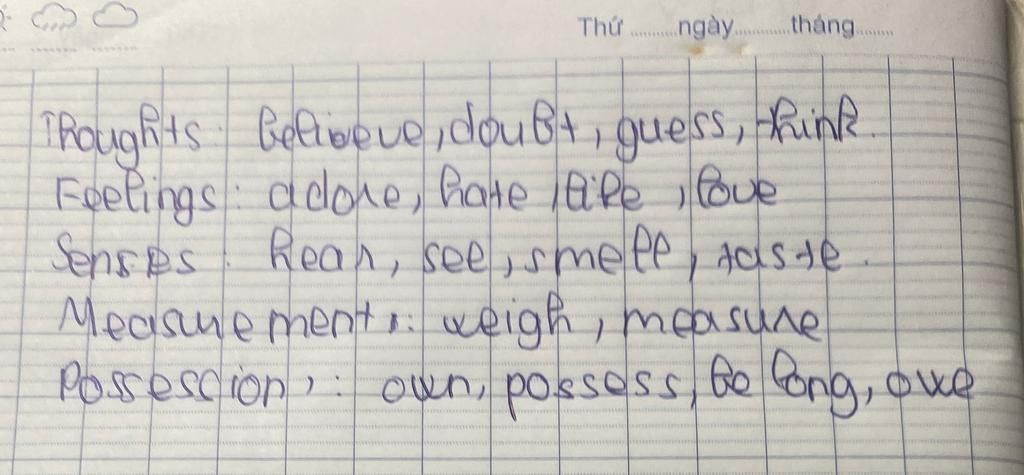 Thứ ..........ngày............tháng........
Thoughts: Believe, doubt, guess, think.
Feelings: adore, hate, like, love
Senses: hear, see, smell, taste.
Measurement: weigh, measure
Possession: own, possess, belong, owe